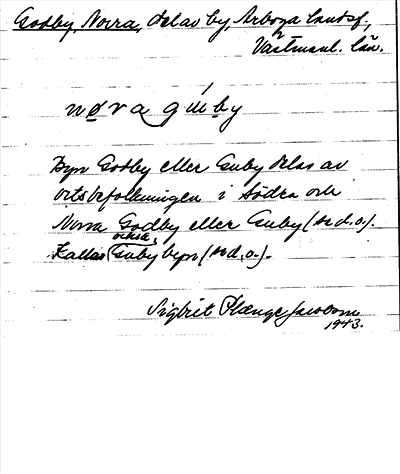 Godby, Norra, del av by, Arboga landsf.,
Västmanl. län.
nøra gu̍by
Byn Godby eller Guby delas av
ortsbefolkningen i Södra och
Norra Godby eller Guby (se d.o.).
Kallas också Gubybyn (se d.o.).
Sigbrit Plænge Jacobson
1943.